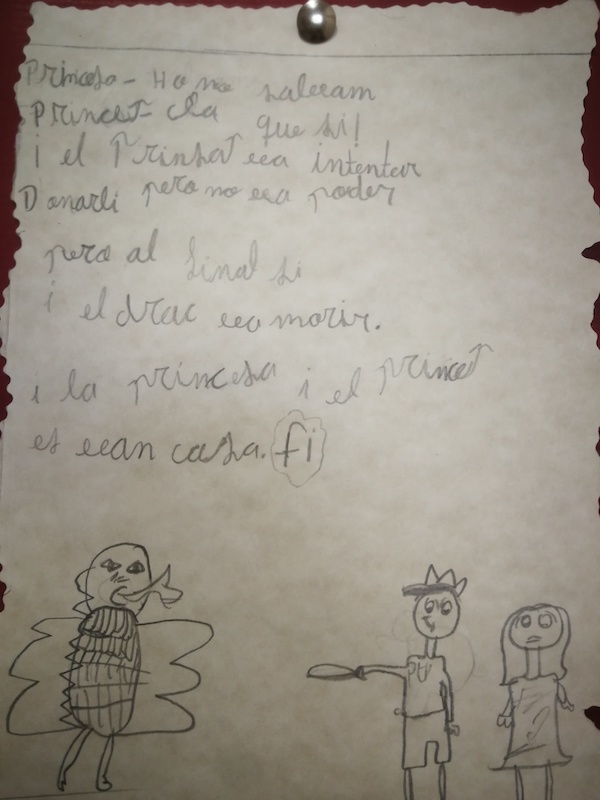 Princesa - Ho no saleeam
Princet - cla que si!
i el Prinsat eea intentar
Donarli pero no eea poder
pero al final si
i el drac eea morir.
i la princesa i el princet
es eean casa. fi